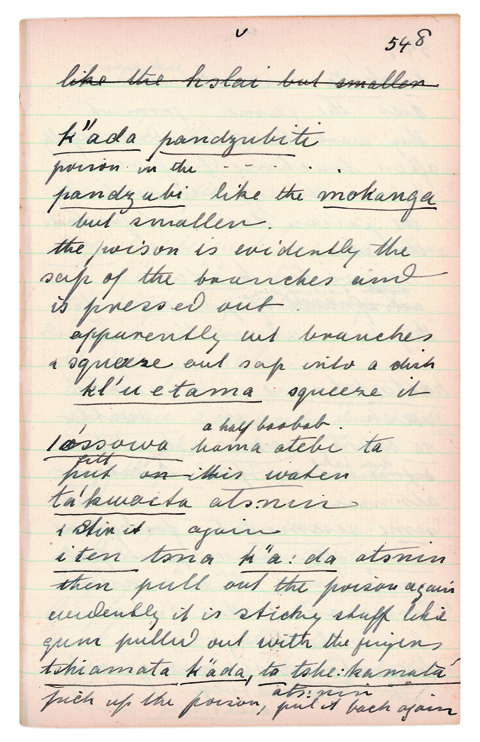 548
like the kolai but smaller
k"ada pandzubiti
poison in the - - - - -
pandzubi like the mokanga
but smaller.
the poison is evidently the
sap of the branches and
is pressed out.
apparently cut branches
& squeeze out sap into a dish
kl'uetama squeeze it
a half baobab.
lóssowa hama atebe ta
put on this water
tákwaita atsnin
& stir it again
iten tsna k"a:da atsnin
then pull out the poison again
evidently it is sticky stuff like
gum pulled out with the fingers
tshiamata k"ada, ta tshe:kamatá
ats:nin
pick up the poison, put it back again